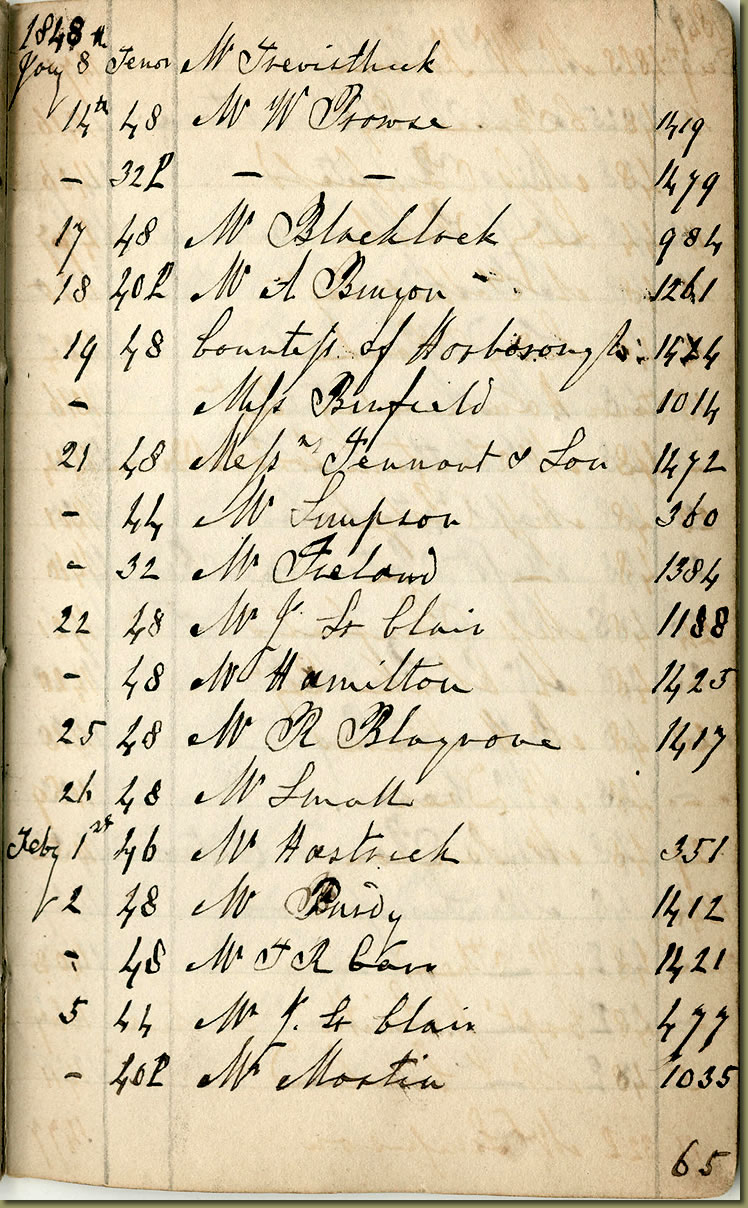 1848
Jany 8 Tenor Mr Trevisthick
14th 48 Mr W Prowse 1419
- 32P - - 1479
17 48 Mr Blacklock 984
18 40P Mr A Binyon - 1261
19 48 Countess of Harborough 1424
- Mess Binfield 1014
21 48 Messrs Tennant & Son 1472
- 44 Mr Simpson 360
- 32 Mr Ireland 1384
22 48 Mr J. St Clair 1188
- 48 Mr Hamilton 1425
25 48 Mr R Blagrove 1417
26 48 Mr Small
Feby 1st 46 Mr Hastrick 351
2 48 Mr Purdy 1412
- 48 Mr T R 1421
5 44 Mr J. St Clair 477
- 40P Mr Martin 1035
65